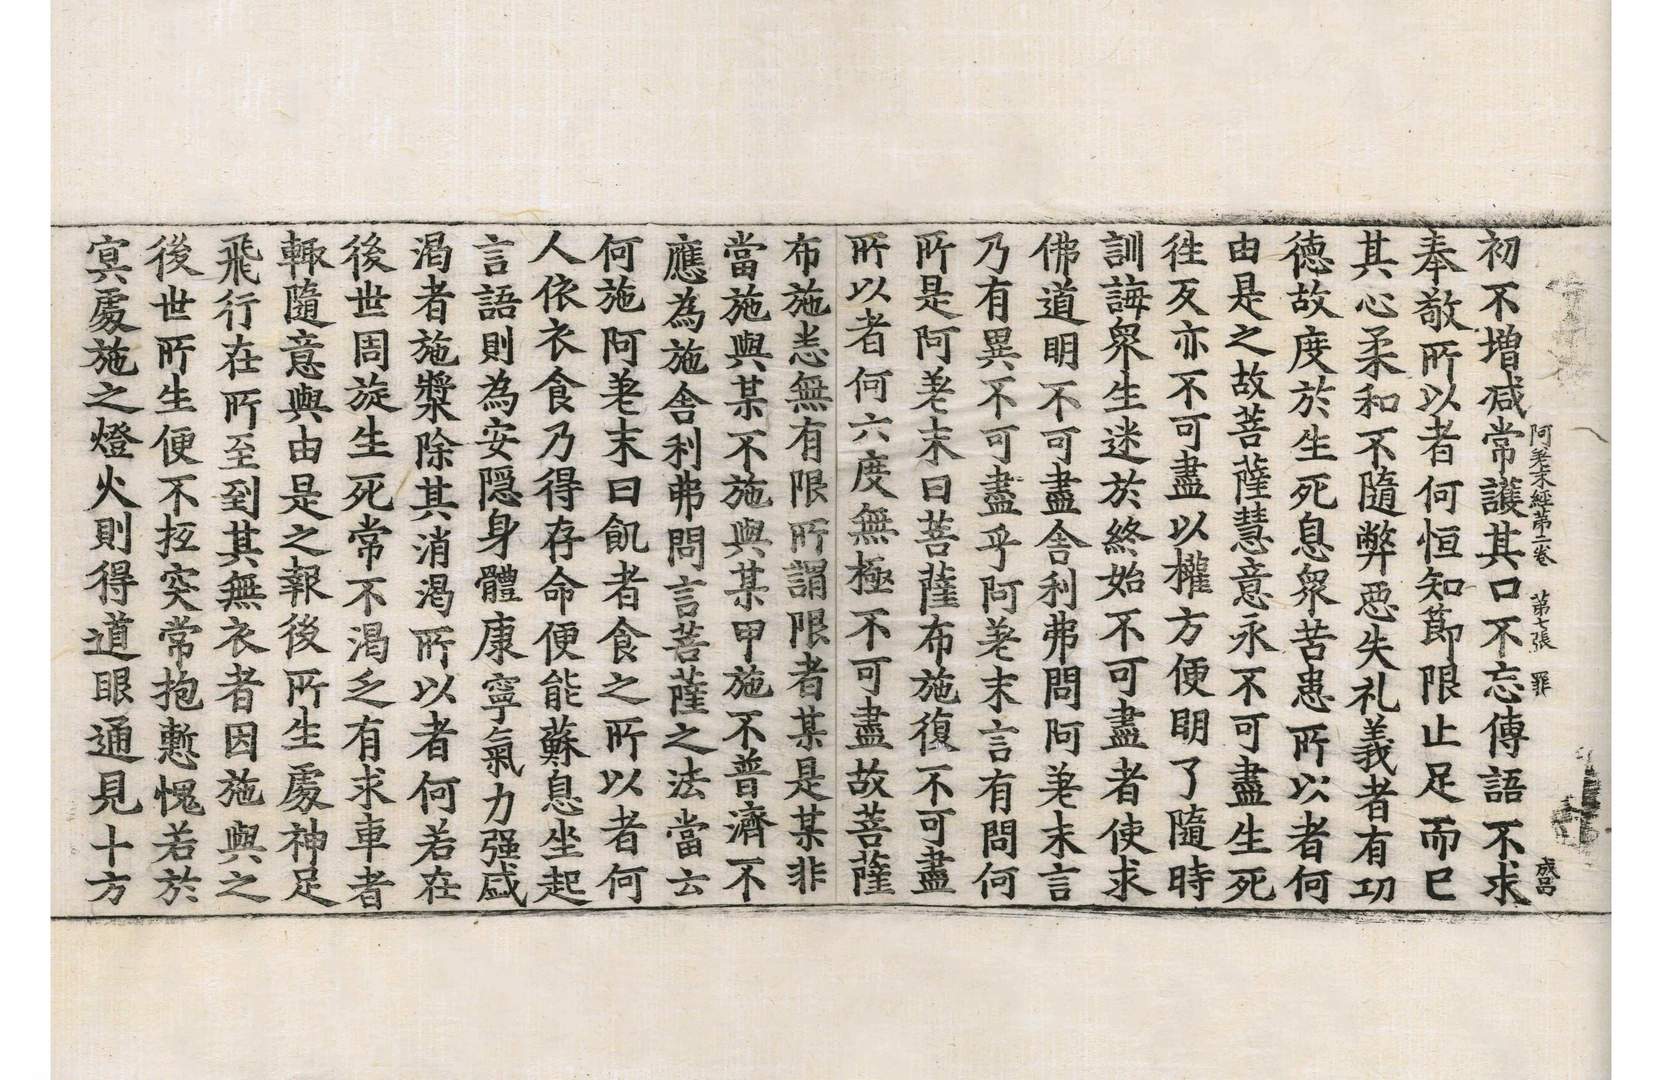 阿差末經第二卷 第七張 罪 成昌
初不增减常護其口不忘傳語不求
奉敬所以者何恒知節限止足而已
其心柔和不隨弊惡失礼義者有功
德故度於生死息衆苦患所以者何
由是之故菩薩慧意永不可盡生死
徃反亦不可盡以權方便明了隨時
訓誨衆生迷於終始不可盡者使求
佛道明不可盡舍利弗問阿差末言
乃有異不可盡乎阿差末言有問何
所是阿差末曰菩薩布施復不可盡
所以者何六度無極不可盡故菩薩
布施悉無有限所謂限者某是某非
當施與某不施與某甲施不普濟不
應為施舍利弗問言菩薩之法當云
何施阿差末曰飢者食之所以者何
人依衣食乃得存命便能蘇息坐起
言語則為安隱身體康寧氣力强盛
渴者施漿除其消渴所以者何若在
後世周旋生死常不渴乏有求車者
輙隨意與由是之報後所生處神足
飛行在所至到其無衣者因施與之
後世所生便不抂突常抱慙愧若於
冥處施之燈火則得道眼通見十方